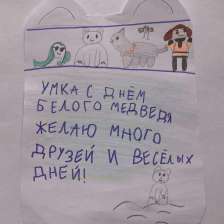 УМКА С ДНЁМ
БЕЛОГО МЕДВЕДЯ
ЖЕЛАЮ МНОГО
ДРУЗЕЙ И ВЕСЁЛЫХ
ДНЕЙ!